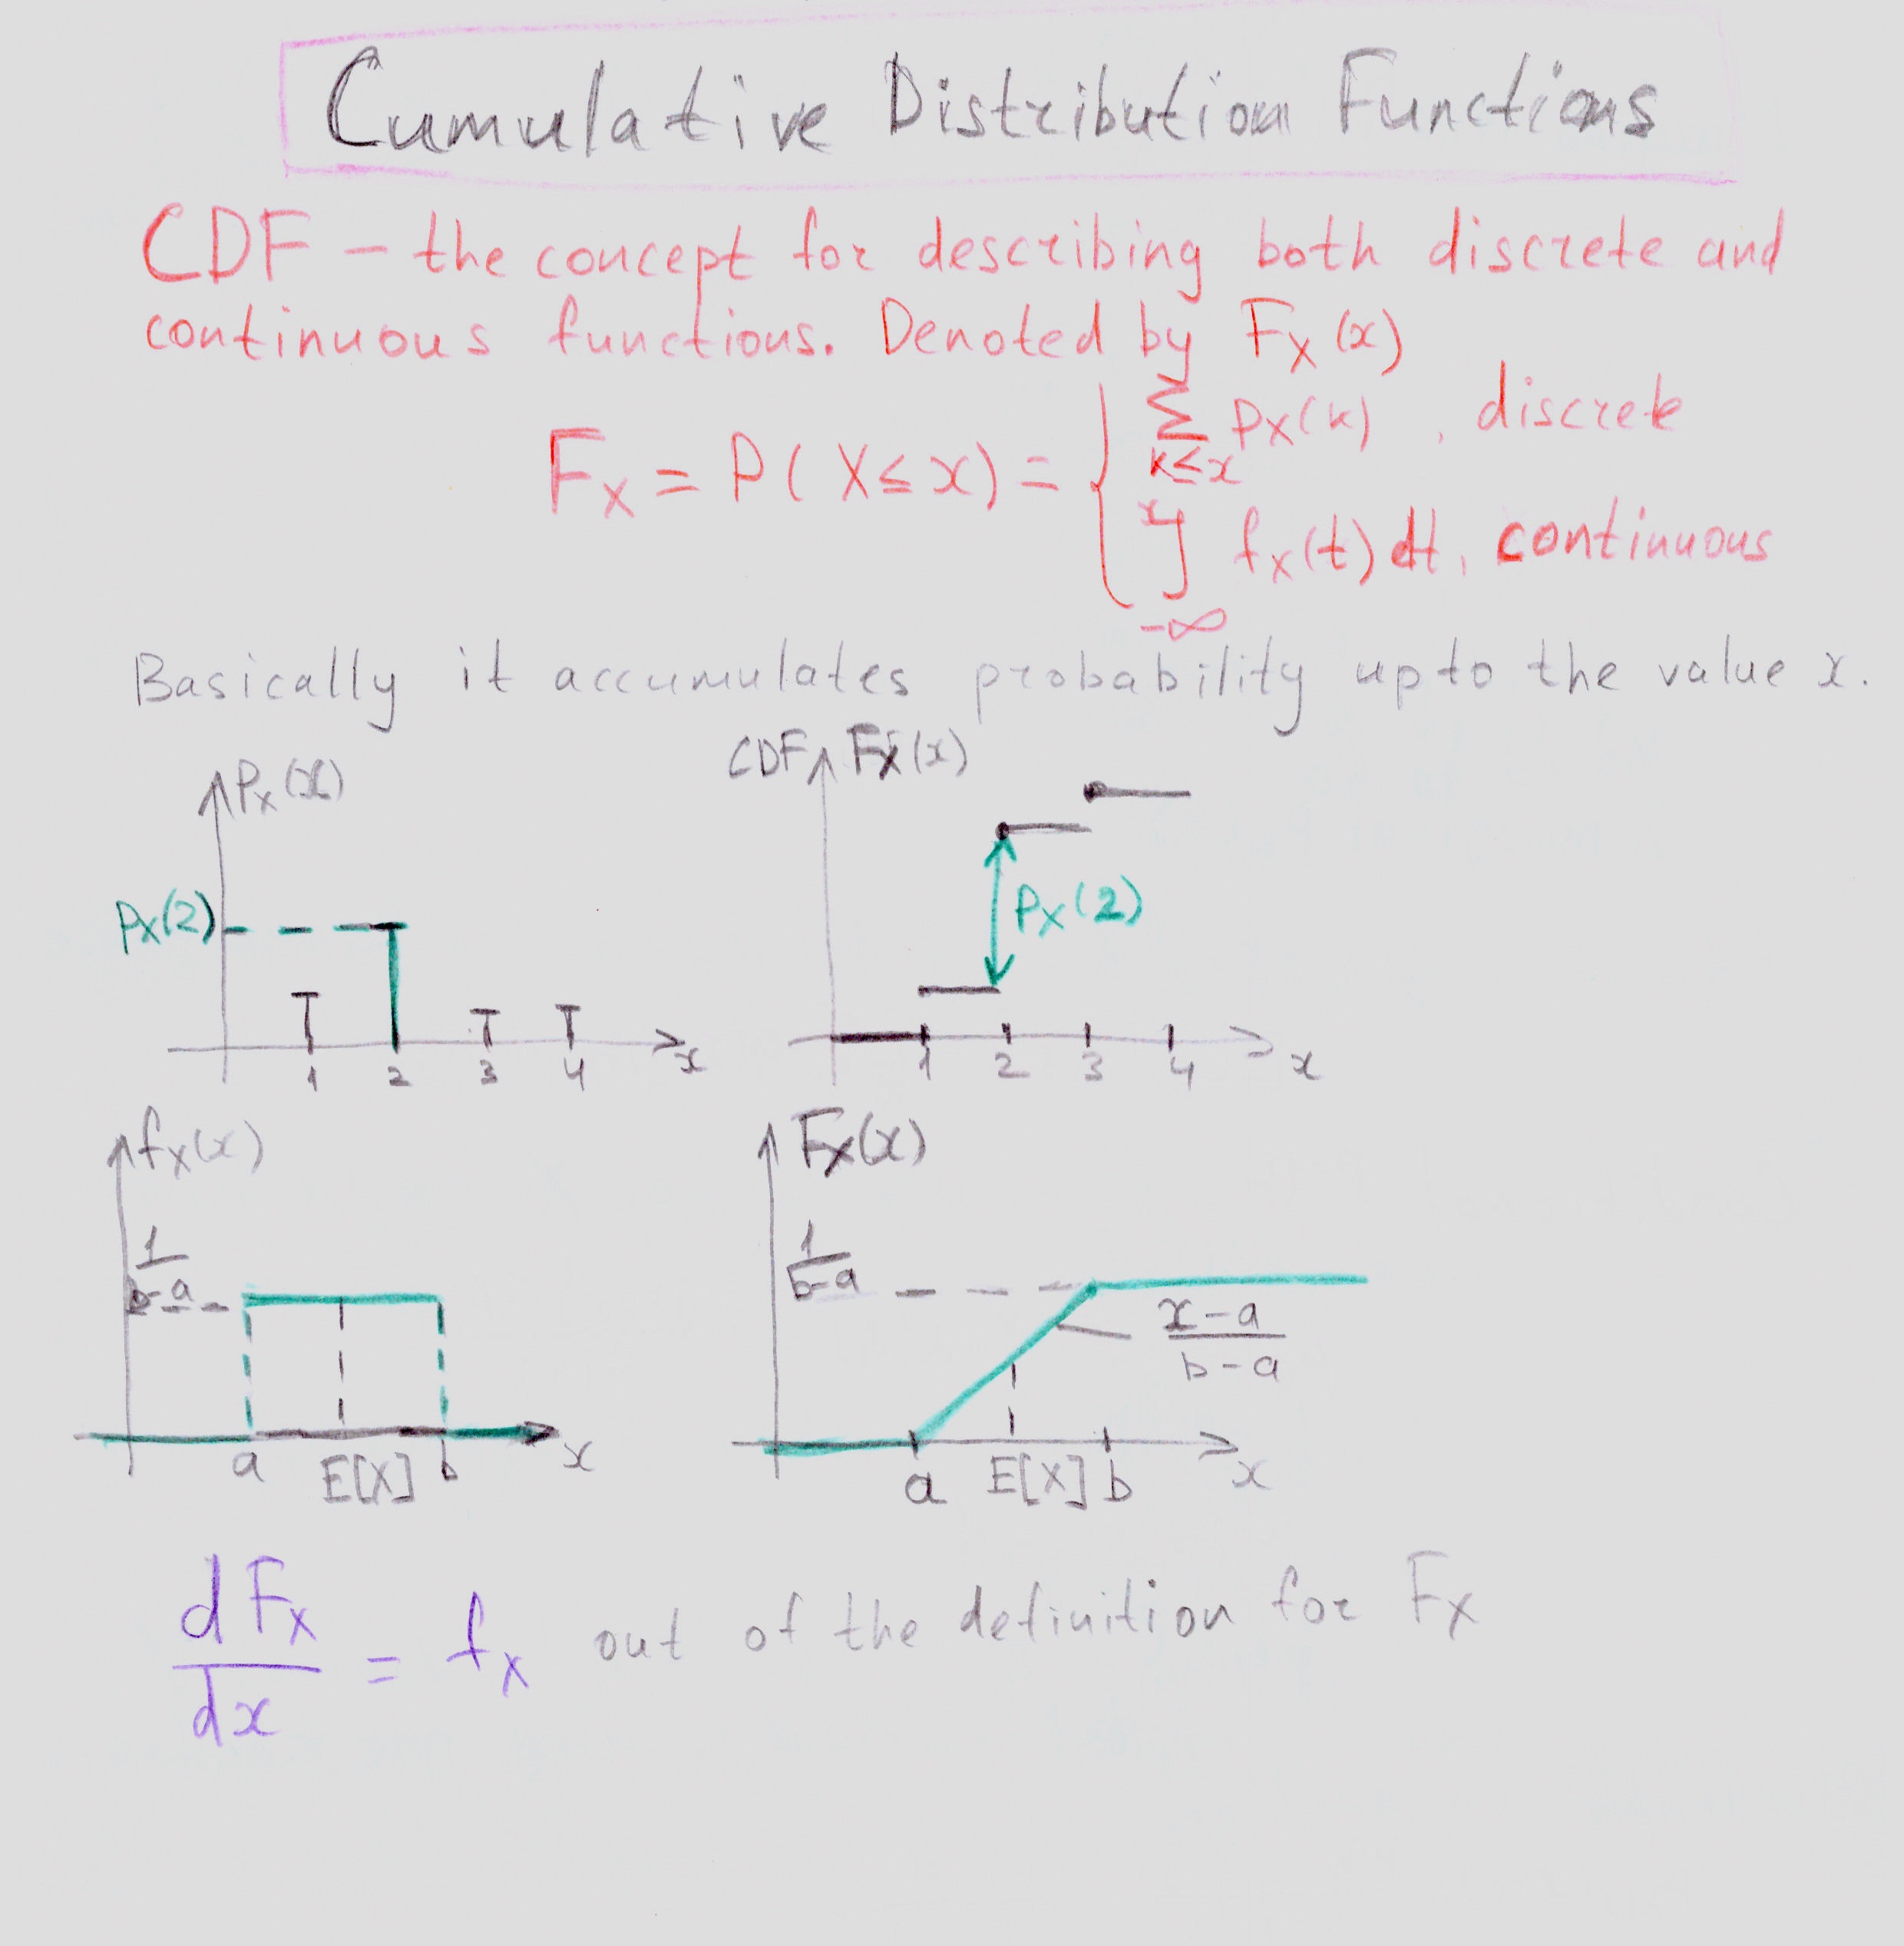 Cumulative Distribution Functions
CDF – the concept for describing both discrete and
continuous functions. Denoted by F_X(x)
F_X = P(X≤x) = { ∑_{k≤x} p_X(k), discrete
∫_{-∞}^{x} f_X(t)dt, continuous
Basically it accumulates probability up to the value x.
P_X(x)
CDF F_X(x)
p_X(2)
P_X(2)
1 2 3 4 x
1 2 3 4 x
f_X(x)
F_X(x)
1/(b-a)
1/(b-a)
(x-a)/(b-a)
a E[X] b x
a E[X] b x
dF_X/dx = f_X out of the definition for F_X